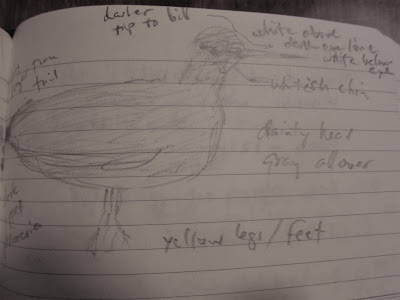 darker
tip to bill
white above
dark eye line
white below
eye
whitish chin
dainty head
Gray allover
tail
yellow legs / feet